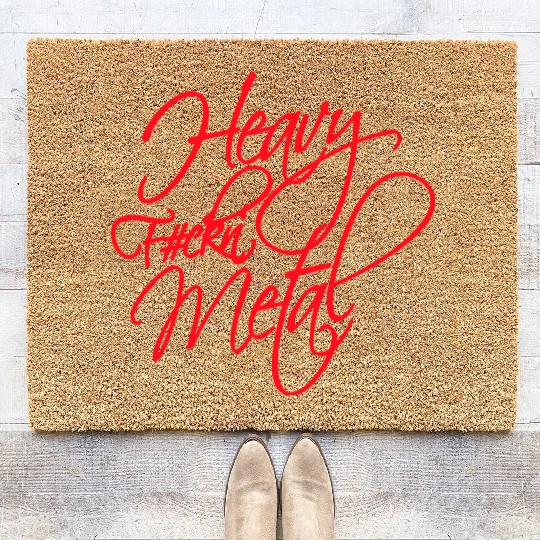 Heavy
F#ckn'
Metal